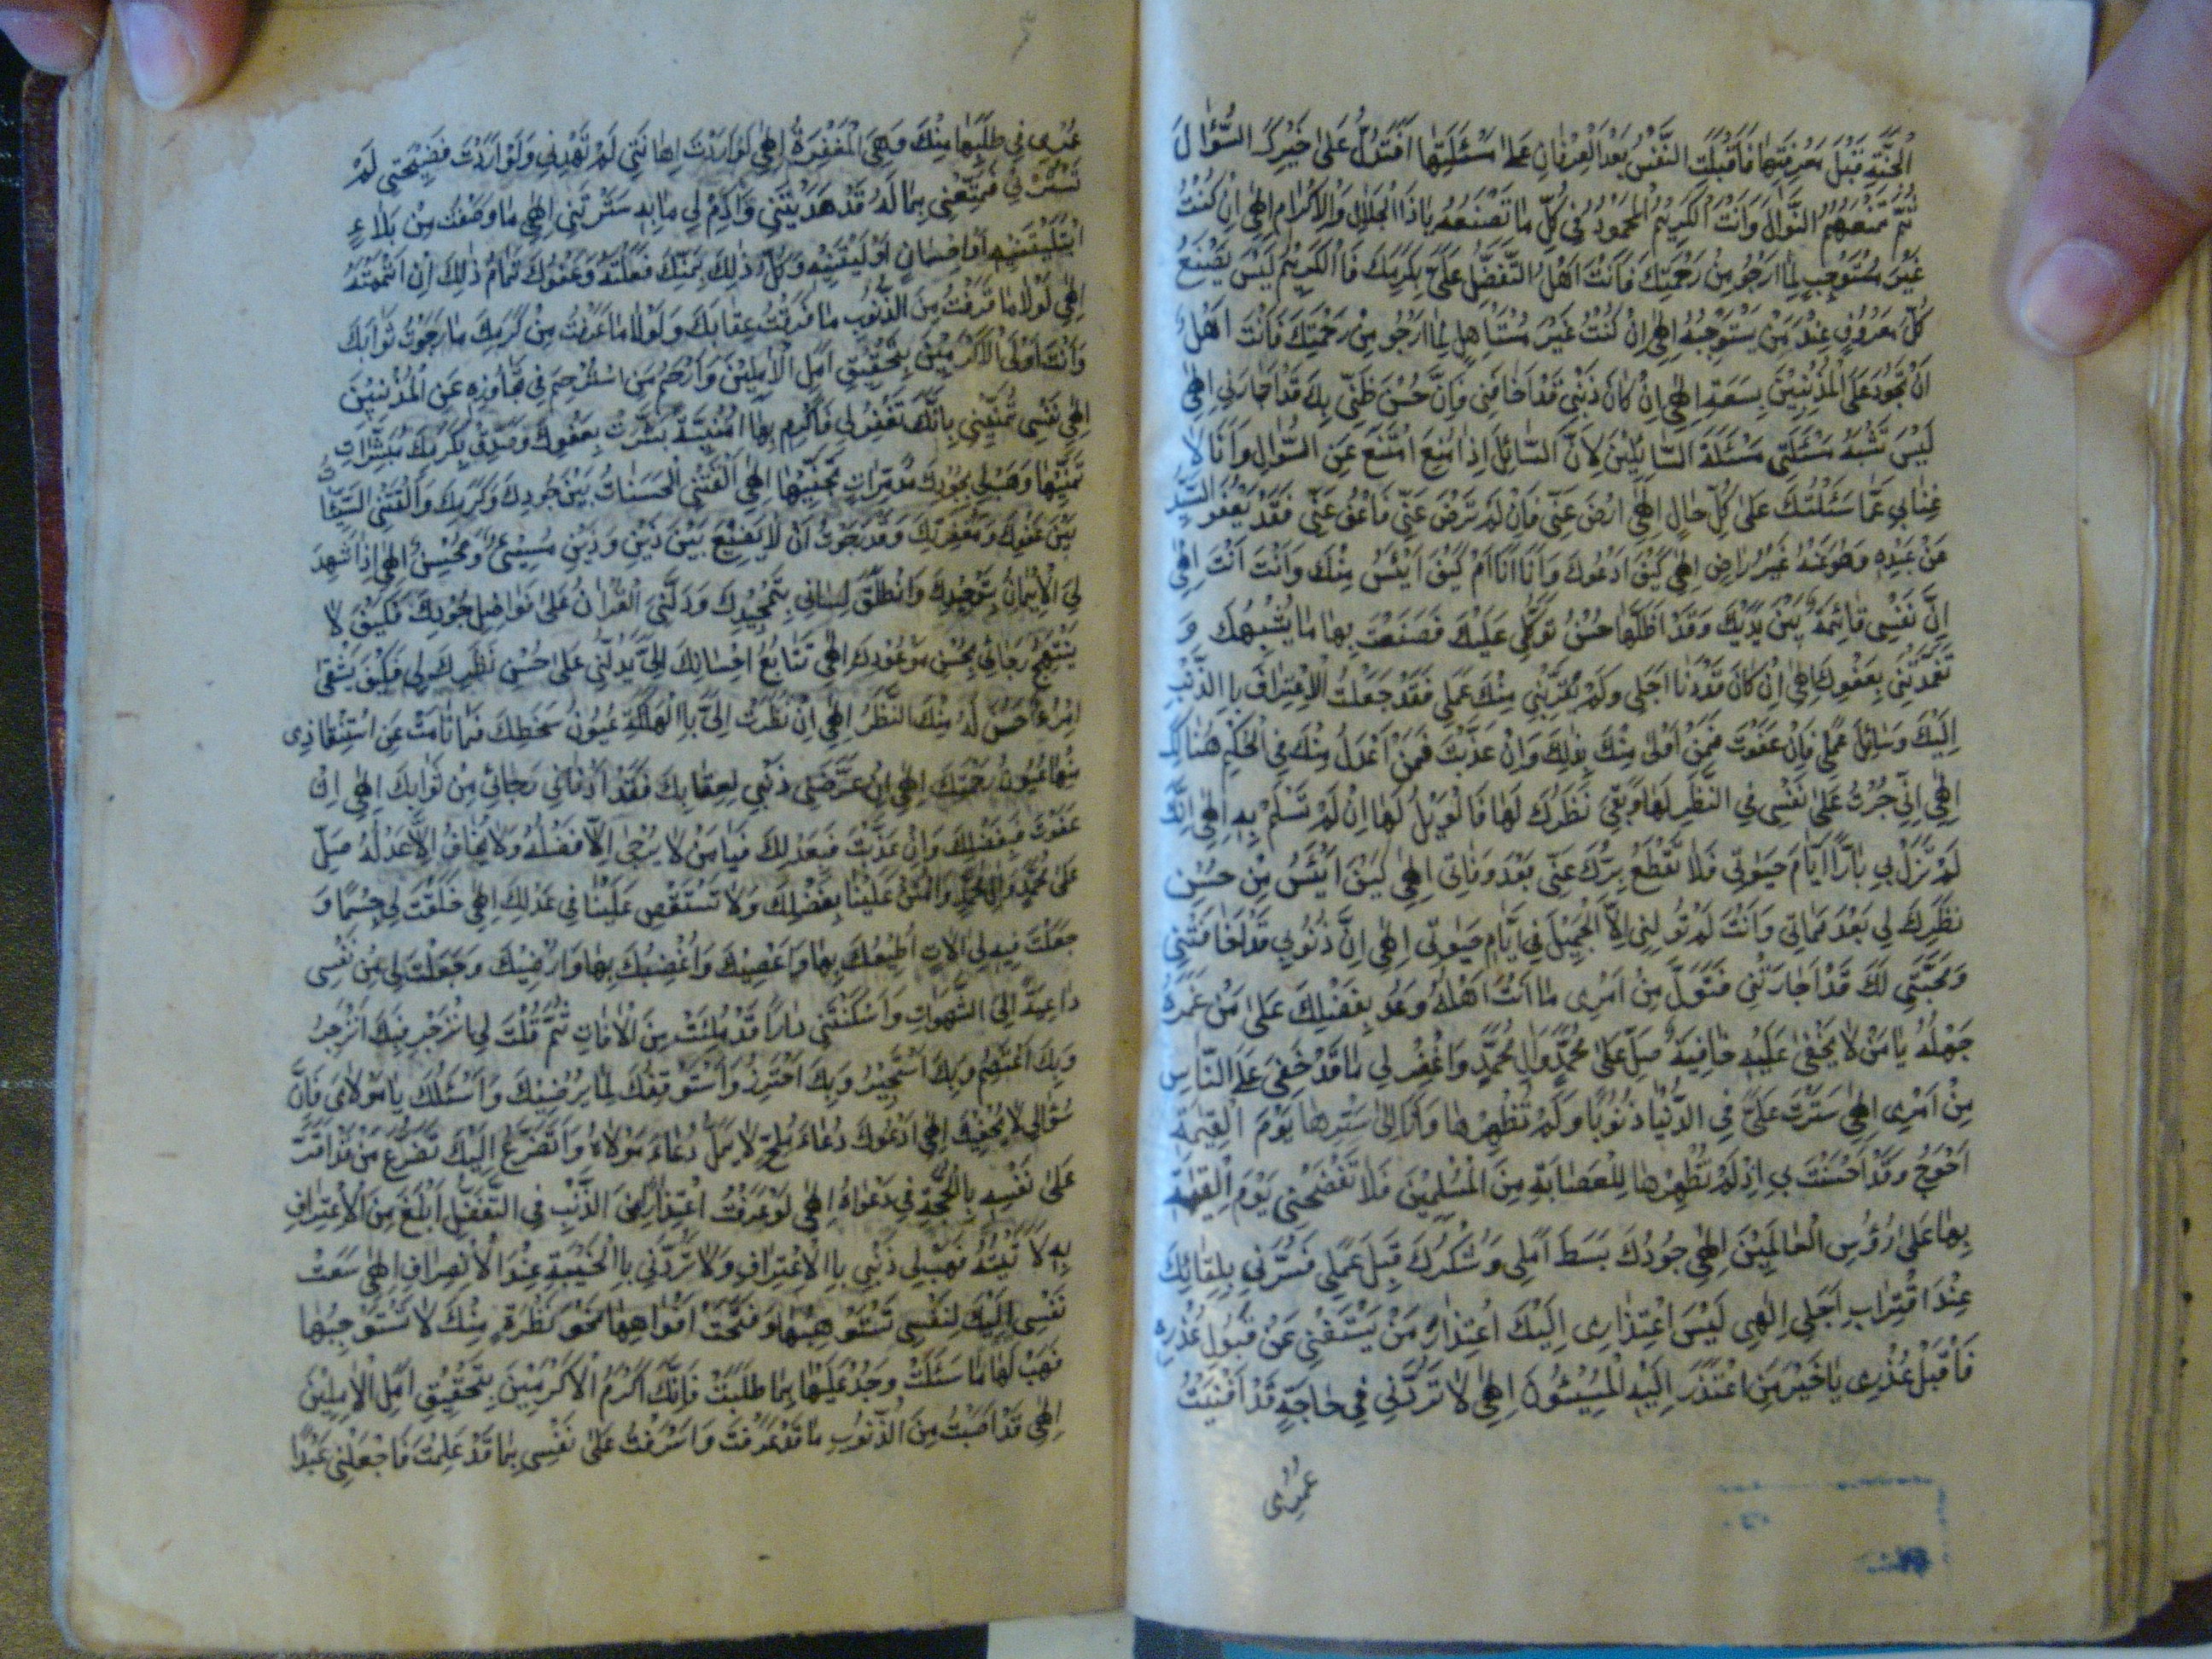 الْجَنَّةِ قَبْلَ مَعْرِفَتِهَا فَاَقْبَلَتِ النَّفْسُ بَعْدَ الْعِرْفَانِ عَلٰى مَسْئَلَتِهَا اَفَتَدُلُّ عَلٰى خَيْرِكَ السُّؤٰالَ
ثُمَّ تَمْنَعُهُمُ النَّوٰالَ وَاَنْتَ الْكَرِيْمُ الْمَحْمُوْدُ فِي كُلِّ مَا تَصْنَعُهُ يَا ذَا الْجَلٰالِ وَالْاِكْرٰامِ اِلٰهِي اِنْ كُنْتُ
غَيْرَ مُسْتَوْجِبٍ لِمٰا اَرْجُو مِنْ رَحْمَتِكَ فَاَنْتَ اَهْلُ التَّفَضُّلِ عَلَيَّ بِكَرَمِكَ فَالْكَرِيْمُ لَيْسَ يَصْنَعُ
كُلَّ مَعْرُوْفٍ عِنْدَ مَنْ يَسْتَوْجِبُهُ اِلٰهِي اِنْ كُنْتُ غَيْرَ مُسْتَاْهِلٍ لِمٰا اَرْجُو مِنْ رَحْمَتِكَ فَاَنْتَ اَهْلٌ
اَنْ تَجُوْدَ عَلَى الْمُذْنِبِيْنَ بِسَعَةِ اِلٰهِي اِنْ كَانَ ذَنْبِي قَدْ اَخَافَنِي فَاِنَّ حُسْنَ ظَنِّي بِكَ قَدْ اَجَارَنِي اِلٰهِي
لَيْسَ تُشْبِهُ مَسْئَلَتِي مَسْئَلَةَ السَّائِلِيْنَ لِاَنَّ السَّائِلَ اِذَا مُنِعَ امْتَنَعَ عَنِ السُّؤٰالِ وَاَنَا لٰا
غِنٰا بِي عَمَّا سَئَلْتُكَ عَلٰى كُلِّ حَالٍ اِلٰهِي ارْضَ عَنِّي فَاِنْ لَمْ تَرْضَ عَنِّي فَاعْفُ عَنِّي فَقَدْ يَعْفُو السَّيِّدُ
عَنْ عَبْدِهِ وَهُوَ عَنْهُ غَيْرُ رَاضٍ اِلٰهِي كَيْفَ اَدْعُوْكَ وَاَنَا اَنَا اَمْ كَيْفَ اَيْئَسُ مِنْكَ وَاَنْتَ اَنْتَ اِلٰهِي
اِنَّ نَفْسِي قَائِمَةٌ بَيْنَ يَدَيْكَ وَقَدْ اَظَلَّهَا حُسْنُ تَوَكُّلِي عَلَيْكَ فَصَنَعْتَ بِهَا مَا يُشْبِهُكَ وَ
تَغَمَّدْتَنِي بِعَفْوِكَ اِلٰهِي اِنْ كَانَ قَدْ دَنَا اَجَلِي وَلَمْ يُقَرِّبْنِي مِنْكَ عَمَلِي فَقَدْ جَعَلْتُ الْاِعْتِرَافَ بِالذَّنْبِ
اِلَيْكَ وَسَائِلَ عَمَلِي فَاِنْ عَفَوْتَ فَمَنْ اَوْلٰى مِنْكَ بِذٰلِكَ وَاِنْ عَذَّبْتَ فَمَنْ اَعْدَلُ مِنْكَ فِي الْحُكْمِ هُنَالِكَ
اِلٰهِي اِنِّي جُرْتُ عَلٰى نَفْسِي فِي النَّظَرِ لَهَا وَبَقِيَ نَظَرُكَ لَهَا فَالْوَيْلُ لَهَا اِنْ لَمْ تَسْلَمْ بِهِ اِلٰهِي اِنَّكَ
لَمْ تَزَلْ بِي بَارًّا اَيَّامَ حَيٰوتِي فَلٰا تَقْطَعْ بِرَّكَ عَنِّي بَعْدَ وَفَاتِي اِلٰهِي كَيْفَ اَيْئَسُ مِنْ حُسْنِ
نَظَرِكَ لِي بَعْدَ مَمَاتِي وَاَنْتَ لَمْ تُوَلِّنِي اِلَّا الْجَمِيْلَ فِي اَيَّامِ حَيٰوتِي اِلٰهِي اِنَّ ذُنُوْبِي قَدْ اَخَافَتْنِي
وَمَحَبَّتِي لَكَ قَدْ اَجَارَتْنِي فَتَوَلَّ مِنْ اَمْرِي مَا اَنْتَ اَهْلُهُ وَعُدْ بِفَضْلِكَ عَلٰى مَنْ غَمَرَهُ
جَهْلُهُ يَا مَنْ لٰا يَخْفٰى عَلَيْهِ خَافِيَةٌ صَلِّ عَلٰى مُحَمَّدٍ وَاٰلِ مُحَمَّدٍ وَاغْفِرْ لِي مَا قَدْ خَفِيَ عَلَى النَّاسِ
مِنْ اَمْرِي اِلٰهِي سَتَرْتَ عَلَيَّ فِي الدُّنْيَا ذُنُوْبًا وَلَمْ تُظْهِرْهَا وَاَنَا اِلٰى سَتْرِهَا يَوْمَ الْقِيٰمَةِ
اَحْوَجُ وَقَدْ اَحْسَنْتَ بِي اِذْ لَمْ تُظْهِرْهَا لِلْعِصَابَةِ مِنَ الْمُسْلِمِيْنَ فَلٰا تَفْضَحْنِي يَوْمَ الْقِيٰمَةِ
بِهَا عَلٰى رُؤُسِ الْعَالَمِيْنَ اِلٰهِي جُوْدُكَ بَسَطَ اَمَلِي وَشُكْرُكَ قَبِلَ عَمَلِي فَسُرَّنِي بِلِقَائِكَ
عِنْدَ اقْتِرَابِ اَجَلِي اِلٰهِي لَيْسَ اعْتِذَارِي اِلَيْكَ اعْتِذَارَ مَنْ يَسْتَغْنِي عَنْ قَبُوْلِ عُذْرِهِ
فَاقْبَلْ عُذْرِي يَا خَيْرَ مَنِ اعْتَذَرَ اِلَيْهِ الْمُسِيْئُوْنَ اِلٰهِي لٰا تَرُدَّنِي فِي حَاجَةٍ قَدْ اَفْنَيْتُ
عُمْرِي
عُمْرِي فِي طَلَبِهَا مِنْكَ وَهِيَ الْمَغْفِرَةُ اِلٰهِي لَوْ اَرَدْتَ اِهَانَتِي لَمْ تَهْدِنِي وَلَوْ اَرَدْتَ فَضِيْحَتِي لَمْ
تَسْتُرْنِي فَمَتِّعْنِي بِمَا لَهُ قَدْ هَدَيْتَنِي وَاَدِمْ لِي مَا بِهِ سَتَرْتَنِي اِلٰهِي مَا وَصَفْتُ مِنْ بَلٰاءٍ
ابْتَلَيْتَنِيْهِ اَوْ اِحْسَانٍ اَوْلَيْتَنِيْهِ وَكُلُّ ذٰلِكَ بِمَنِّكَ فَعَلْتَهُ وَعَفْوُكَ تَمَامُ ذٰلِكَ اِنْ اَتْمَمْتَهُ
اِلٰهِي لَوْلٰا مَا قَرَفْتُ مِنَ الذُّنُوْبِ مَا فَرِقْتُ عِقَابَكَ وَلَوْلٰا مَا عَرَفْتُ مِنْ كَرَمِكَ مَا رَجَوْتُ ثَوَابَكَ
وَاَنْتَ اَوْلَى الْاَكْرَمِيْنَ بِتَحْقِيْقِ اَمَلِ الْاٰمِلِيْنَ وَاَرْحَمُ مَنِ اسْتُرْحِمَ فِي تَجَاوُزِهِ عَنِ الْمُذْنِبِيْنَ
اِلٰهِي نَفْسِي تُمَنِّيْنِي بِاَنَّكَ تَغْفِرُ لِي فَاَكْرِمْ بِهَا اُمْنِيَّةً بَشَّرَتْ بِعَفْوِكَ وَصَدِّقْ بِكَرَمِكَ مُبَشِّرَاتِ
تَمَنِّيْهَا وَهَبْ لِي بِجُوْدِكَ مُدَمِّرَاتِ تَجَنِّيْهَا اِلٰهِي اَلْقَتْنِي الْحَسَنَاتُ بَيْنَ جُوْدِكَ وَكَرَمِكَ وَاَلْقَتْنِي السَّيِّئَاتُ
بَيْنَ عَفْوِكَ وَمَغْفِرَتِكَ وَقَدْ رَجَوْتُ اَنْ لٰا يَضِيْعَ بَيْنَ ذَيْنِ وَذَيْنِ مُسِيْئٌ وَمُحْسِنٌ اِلٰهِي اِذَا شَهِدَ
لِيَ الْاِيْمَانُ بِتَوْحِيْدِكَ وَانْطَلَقَ لِسَانِي بِتَمْجِيْدِكَ وَدَلَّنِي الْقُرْاٰنُ عَلٰى فَوَاضِلِ جُوْدِكَ فَكَيْفَ لٰا
يَبْتَهِجُ رَجَائِي بِحُسْنِ مَوْعُوْدِكَ اِلٰهِي تَتَابُعُ اِحْسَانِكَ اِلَيَّ يَدُلُّنِي عَلٰى حُسْنِ نَظَرِكَ لِي فَكَيْفَ يَشْقٰى
امْرُءٌ حَسُنَ لَهُ مِنْكَ النَّظَرُ اِلٰهِي اِنْ نَظَرَتْ اِلَيَّ بِالْهَلَكَةِ عُيُوْنُ سَخَطِكَ فَمَا نَامَتْ عَنِ اسْتِنْقَاذِي
مِنْهَا عُيُوْنُ رَحْمَتِكَ اِلٰهِي اِنْ عَرَّضَنِي ذَنْبِي لِعِقَابِكَ فَقَدْ اَدْنَانِي رَجَائِي مِنْ ثَوَابِكَ اِلٰهِي اِنْ
عَفَوْتَ فَبِفَضْلِكَ وَاِنْ عَذَّبْتَ فَبِعَدْلِكَ فَيَا مَنْ لٰا يُرْجٰى اِلَّا فَضْلُهُ وَلٰا يُخَافُ اِلَّا عَدْلُهُ صَلِّ
عَلٰى مُحَمَّدٍ وَاٰلِ مُحَمَّدٍ وَامْنُنْ عَلَيْنَا بِفَضْلِكَ وَلٰا تَسْتَقْصِ عَلَيْنَا فِي عَدْلِكَ اِلٰهِي خَلَقْتَ لِي جِسْمًا وَ
جَعَلْتَ فِيْهِ لِي اٰلٰاتٍ اُطِيْعُكَ بِهَا وَاَعْصِيْكَ وَاُغْضِبُكَ بِهَا وَاُرْضِيْكَ وَجَعَلْتَ لِي مِنْ نَفْسِي
دَاعِيَةً اِلَى الشَّهَوَاتِ وَاَسْكَنْتَنِي دَارًا قَدْ مُلِئَتْ مِنَ الْاٰفَاتِ ثُمَّ قُلْتَ لِي انْزَجِرْ فَبِكَ اَنْزَجِرُ
وَبِكَ اَعْتَصِمُ وَبِكَ اَسْتَجِيْرُ وَبِكَ اَحْتَرِزُ وَاَسْتَوْفِقُكَ لِمَا يُرْضِيْكَ وَاَسْئَلُكَ يَا مَوْلٰايَ فَاِنَّ
سُؤَالِي لٰا يُحْفِيْكَ اِلٰهِي اَدْعُوْكَ دُعَاءَ مُلِحٍّ لٰا يَمَلُّ دُعَاءَ مَوْلٰاهُ وَاَتَضَرَّعُ اِلَيْكَ تَضَرُّعَ مَنْ قَدْ اَقَرَّ
عَلٰى نَفْسِهِ بِالْحُجَّةِ فِي دَعْوَاهُ اِلٰهِي لَوْ عَرَفْتُ اعْتِذَارًا مِنَ الذَّنْبِ فِي التَّنَصُّلِ اَبْلَغَ مِنَ الْاِعْتِرَافِ
بِهِ لَاَتَيْتُهُ فَهَبْ لِي ذَنْبِي بِالْاِعْتِرَافِ وَلٰا تَرُدَّنِي بِالْخَيْبَةِ عِنْدَ الْاِنْصِرَافِ اِلٰهِي سَعَتْ
نَفْسِي اِلَيْكَ لِنَفْسِي تَسْتَوْهِبُهَا وَفَتَحَتْ اَفْوَاهَهَا نَحْوَ نَظْرَةٍ مِنْكَ لٰا تَسْتَوْجِبُهَا
فَهَبْ لَهَا مَا سَئَلَتْ وَجُدْ عَلَيْهَا بِمَا طَلَبَتْ فَاِنَّكَ اَكْرَمُ الْاَكْرَمِيْنَ بِتَحْقِيْقِ اَمَلِ الْاٰمِلِيْنَ
اِلٰهِي قَدْ اَصَبْتُ مِنَ الذُّنُوْبِ مَا قَدْ عَرَفْتَ وَاَسْرَفْتُ عَلٰى نَفْسِي بِمَا قَدْ عَلِمْتَ فَاجْعَلْنِي عَبْدًا